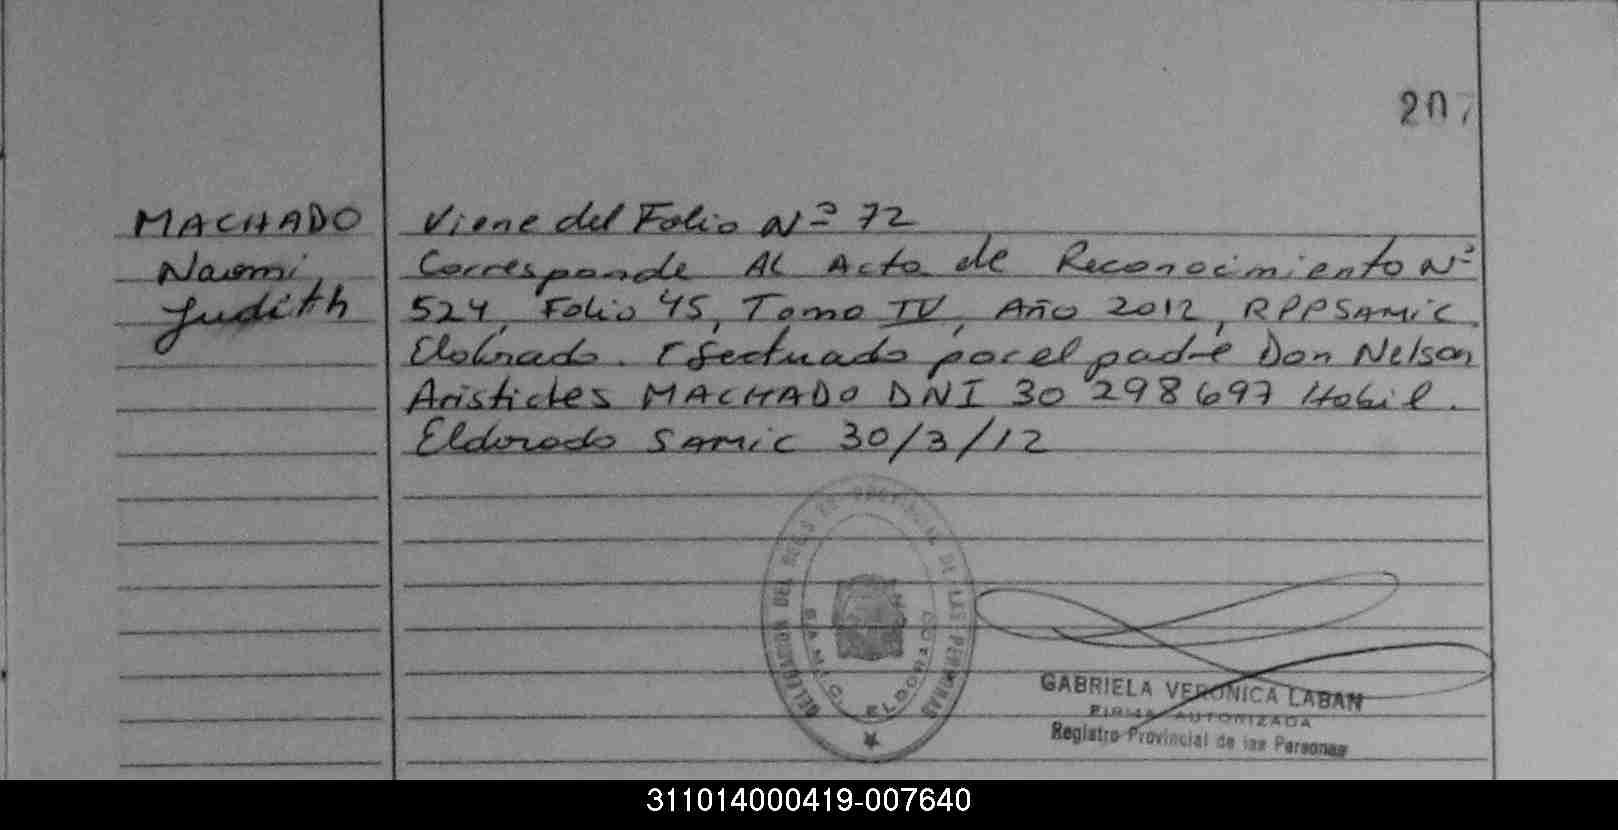 207
MACHADO
Naomi
Judith
Viene del Folio Nº 72
Corresponde AL Acta de Reconocimiento Nº
524, Folio 45, Tomo IV, Año 2012, RPPSAMIC
Eldorado. Efectuado por el padre Don Nelson
Aristides MACHADO DNI 30 298 697 Habil.
Eldorado SAMIC 30/3/12
DELEGACION DEL REGISTRO PROVINCIAL DE LAS PERSONAS
S.A.M.I.C. ELDORADO
GABRIELA VERONICA LABAN
FIRMA AUTORIZADA
Registro Provincial de las Personas
311014000419-007640